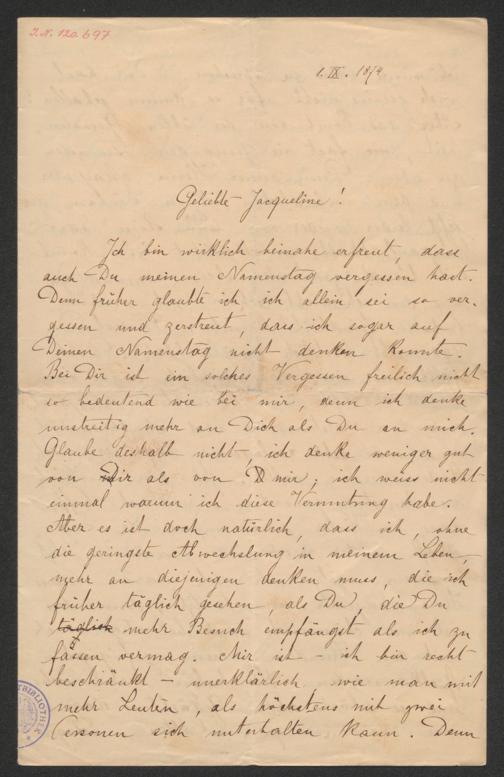 I.N. 120.697
1. IX. 1874
Geliebte Jacqueline!
Ich bin wirklich beinahe erfreut, dass
auch Du meinen Namenstag vergessen hast.
Denn früher glaubte ich ich allein sei so ver-
gessen und zerstreut, dass ich sogar auf
Deinen Namenstag nicht denken konnte.
Bei Dir ist ein solches Vergessen freilich nicht
so bedeutend wie bei mir, denn ich denke
unstreitig mehr an Dich als Du an mich.
Glaube deshalb nicht, ich denke weniger gut
von Dir als von mir; ich weiss nicht
einmal warum ich diese Vermutung habe.
Aber es ist doch natürlich, dass ich, ohne
die geringste Abwechslung in meinem Leben,
mehr an diejenigen denken muss, die ich
früher täglich gesehen, als Du, die Du
täglich mehr Besuch empfängst als ich zu
fassen vermag. Mir ist – ich bin recht
beschränkt – unerklärlich wie man mit
mehr Leuten, als höchstens mit zwei
Personen sich unterhalten kann. Denn
BIBLIOTHEK